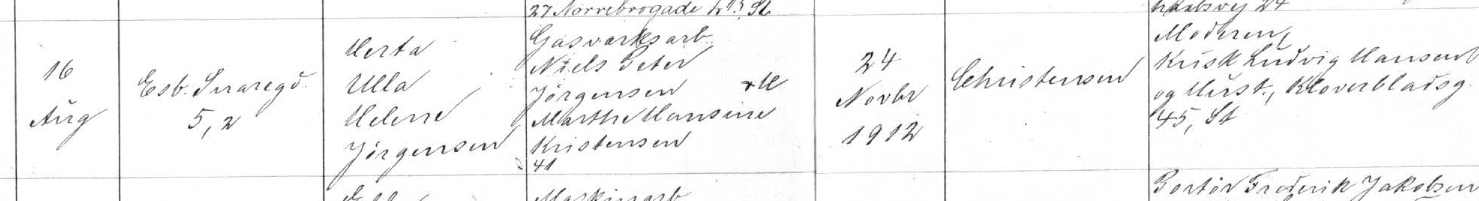 27 Nørrebrogade
16
Aug
Esb. Snaregd.
5, 2
Herta
Ulla
Helene
Jørgensen
Gasværksarb.
Niels Peter
Jørgensen
Marthe Hansine
Kristensen
41
24
Novbr
1912
Christensen
Moderen,
Kusk Ludvig Hansen
og Hust., Kløverbladsg.
45, St
Maskinarb
Portør Frederik Jakobsen